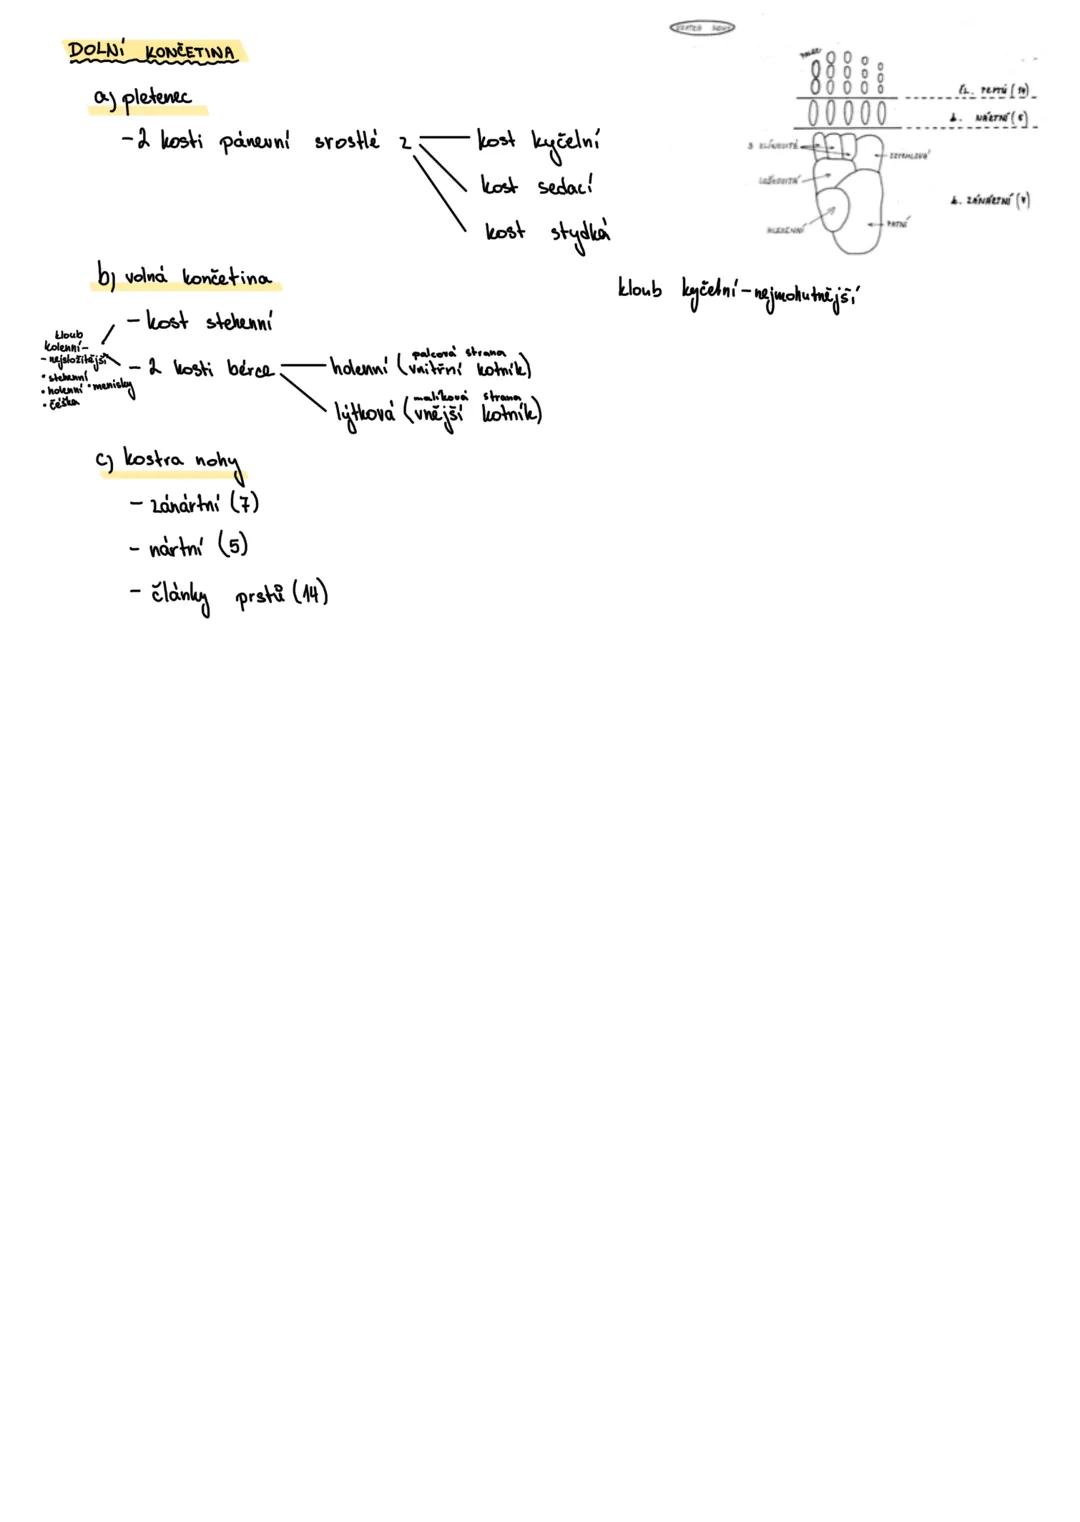 DOLNÍ KONČETINA
a) pletenec
- 2 kosti pánevní srostlé z
kost kyčelní
kost sedací
kost stydká
b) volná končetina
- kost stehenní
kloub
kolenní -
- nejsložitější
• stehenní
• holenní • menisky
• čéška
- 2 kosti bérce
holenní (palcová strana
vnitřní kotník)
lýtková (malíková strana
vnější kotník)
c) kostra nohy
- zánártní (7)
- nártní (5)
- články prstů (14)
KOSTRA NOHY
PALEC
ČL. PRSTŮ (14)
k. NÁRTNÍ (5)
3 KLÍNOVITÉ
LOĎKOVITÁ
k. ZÁNÁRTNÍ (7)
PATNÍ
kloub kyčelní - nejmohutnější